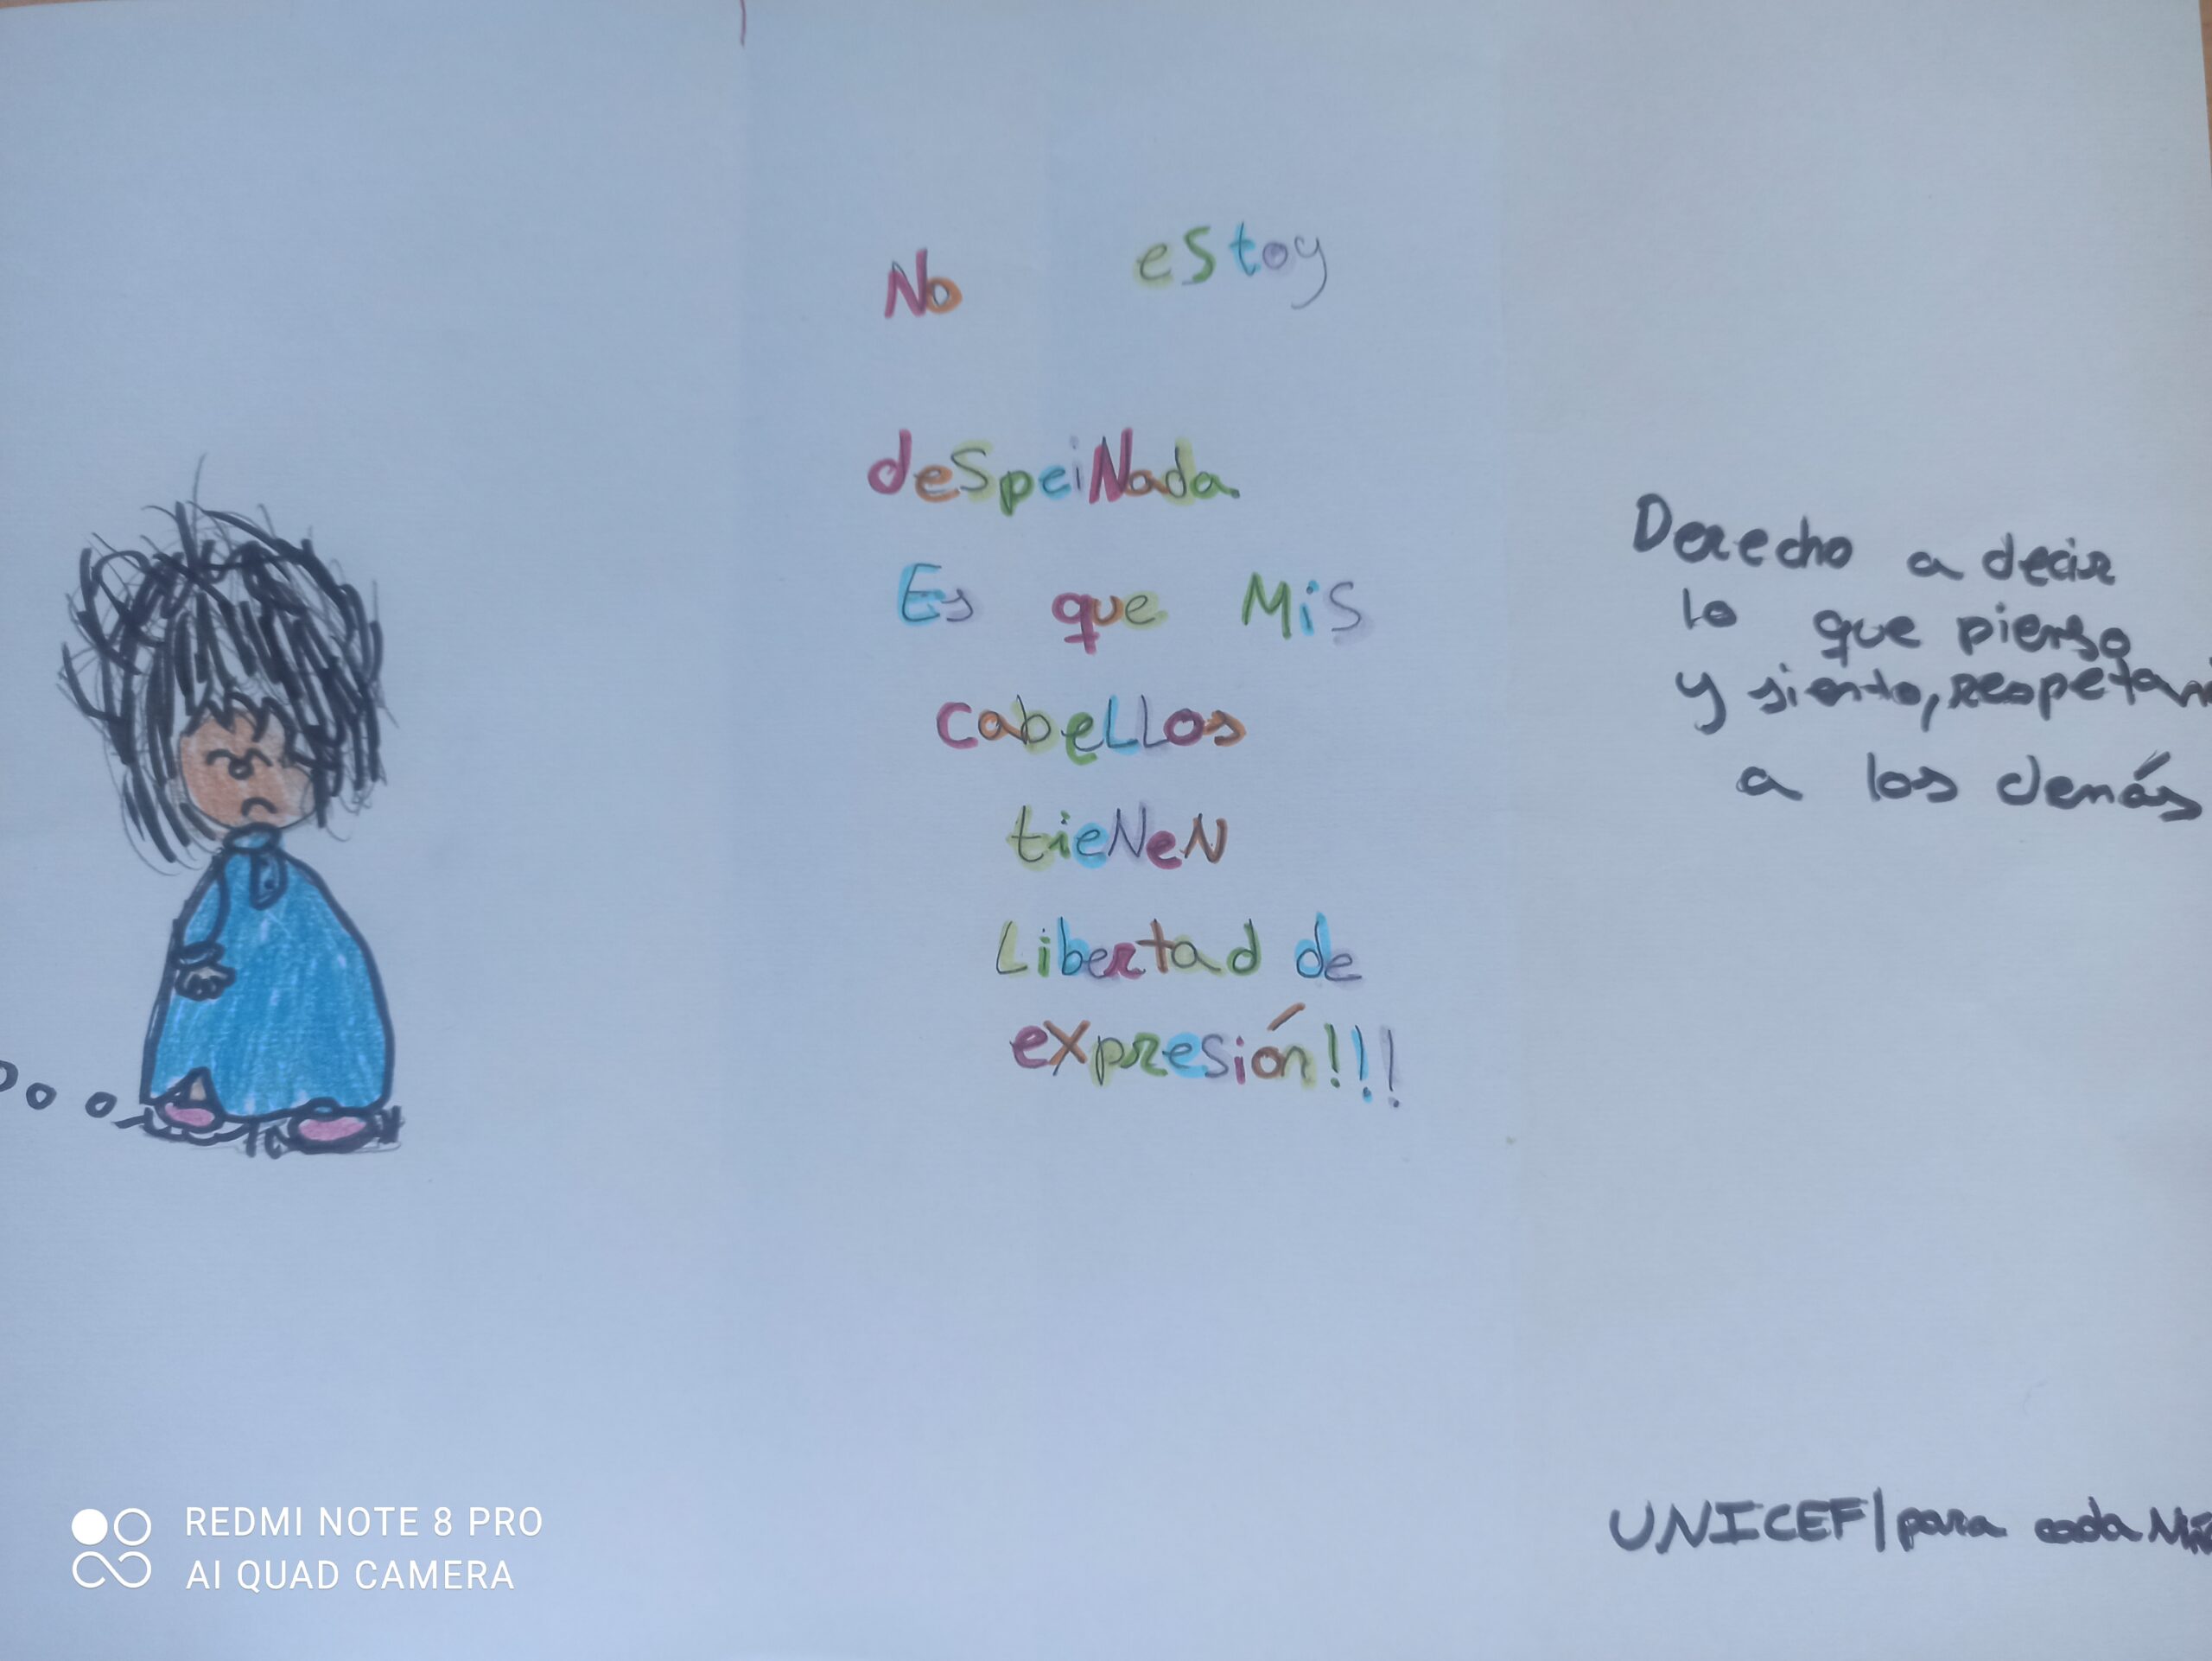 No estoy
despeinada
Es que Mis
cabeLLos
tieNeN
Libertad de
expresión!!!
Derecho a decir
lo que pienso
y siento, respetan
a los demás
UNICEF/para cada
REDMI NOTE 8 PRO
AI QUAD CAMERA